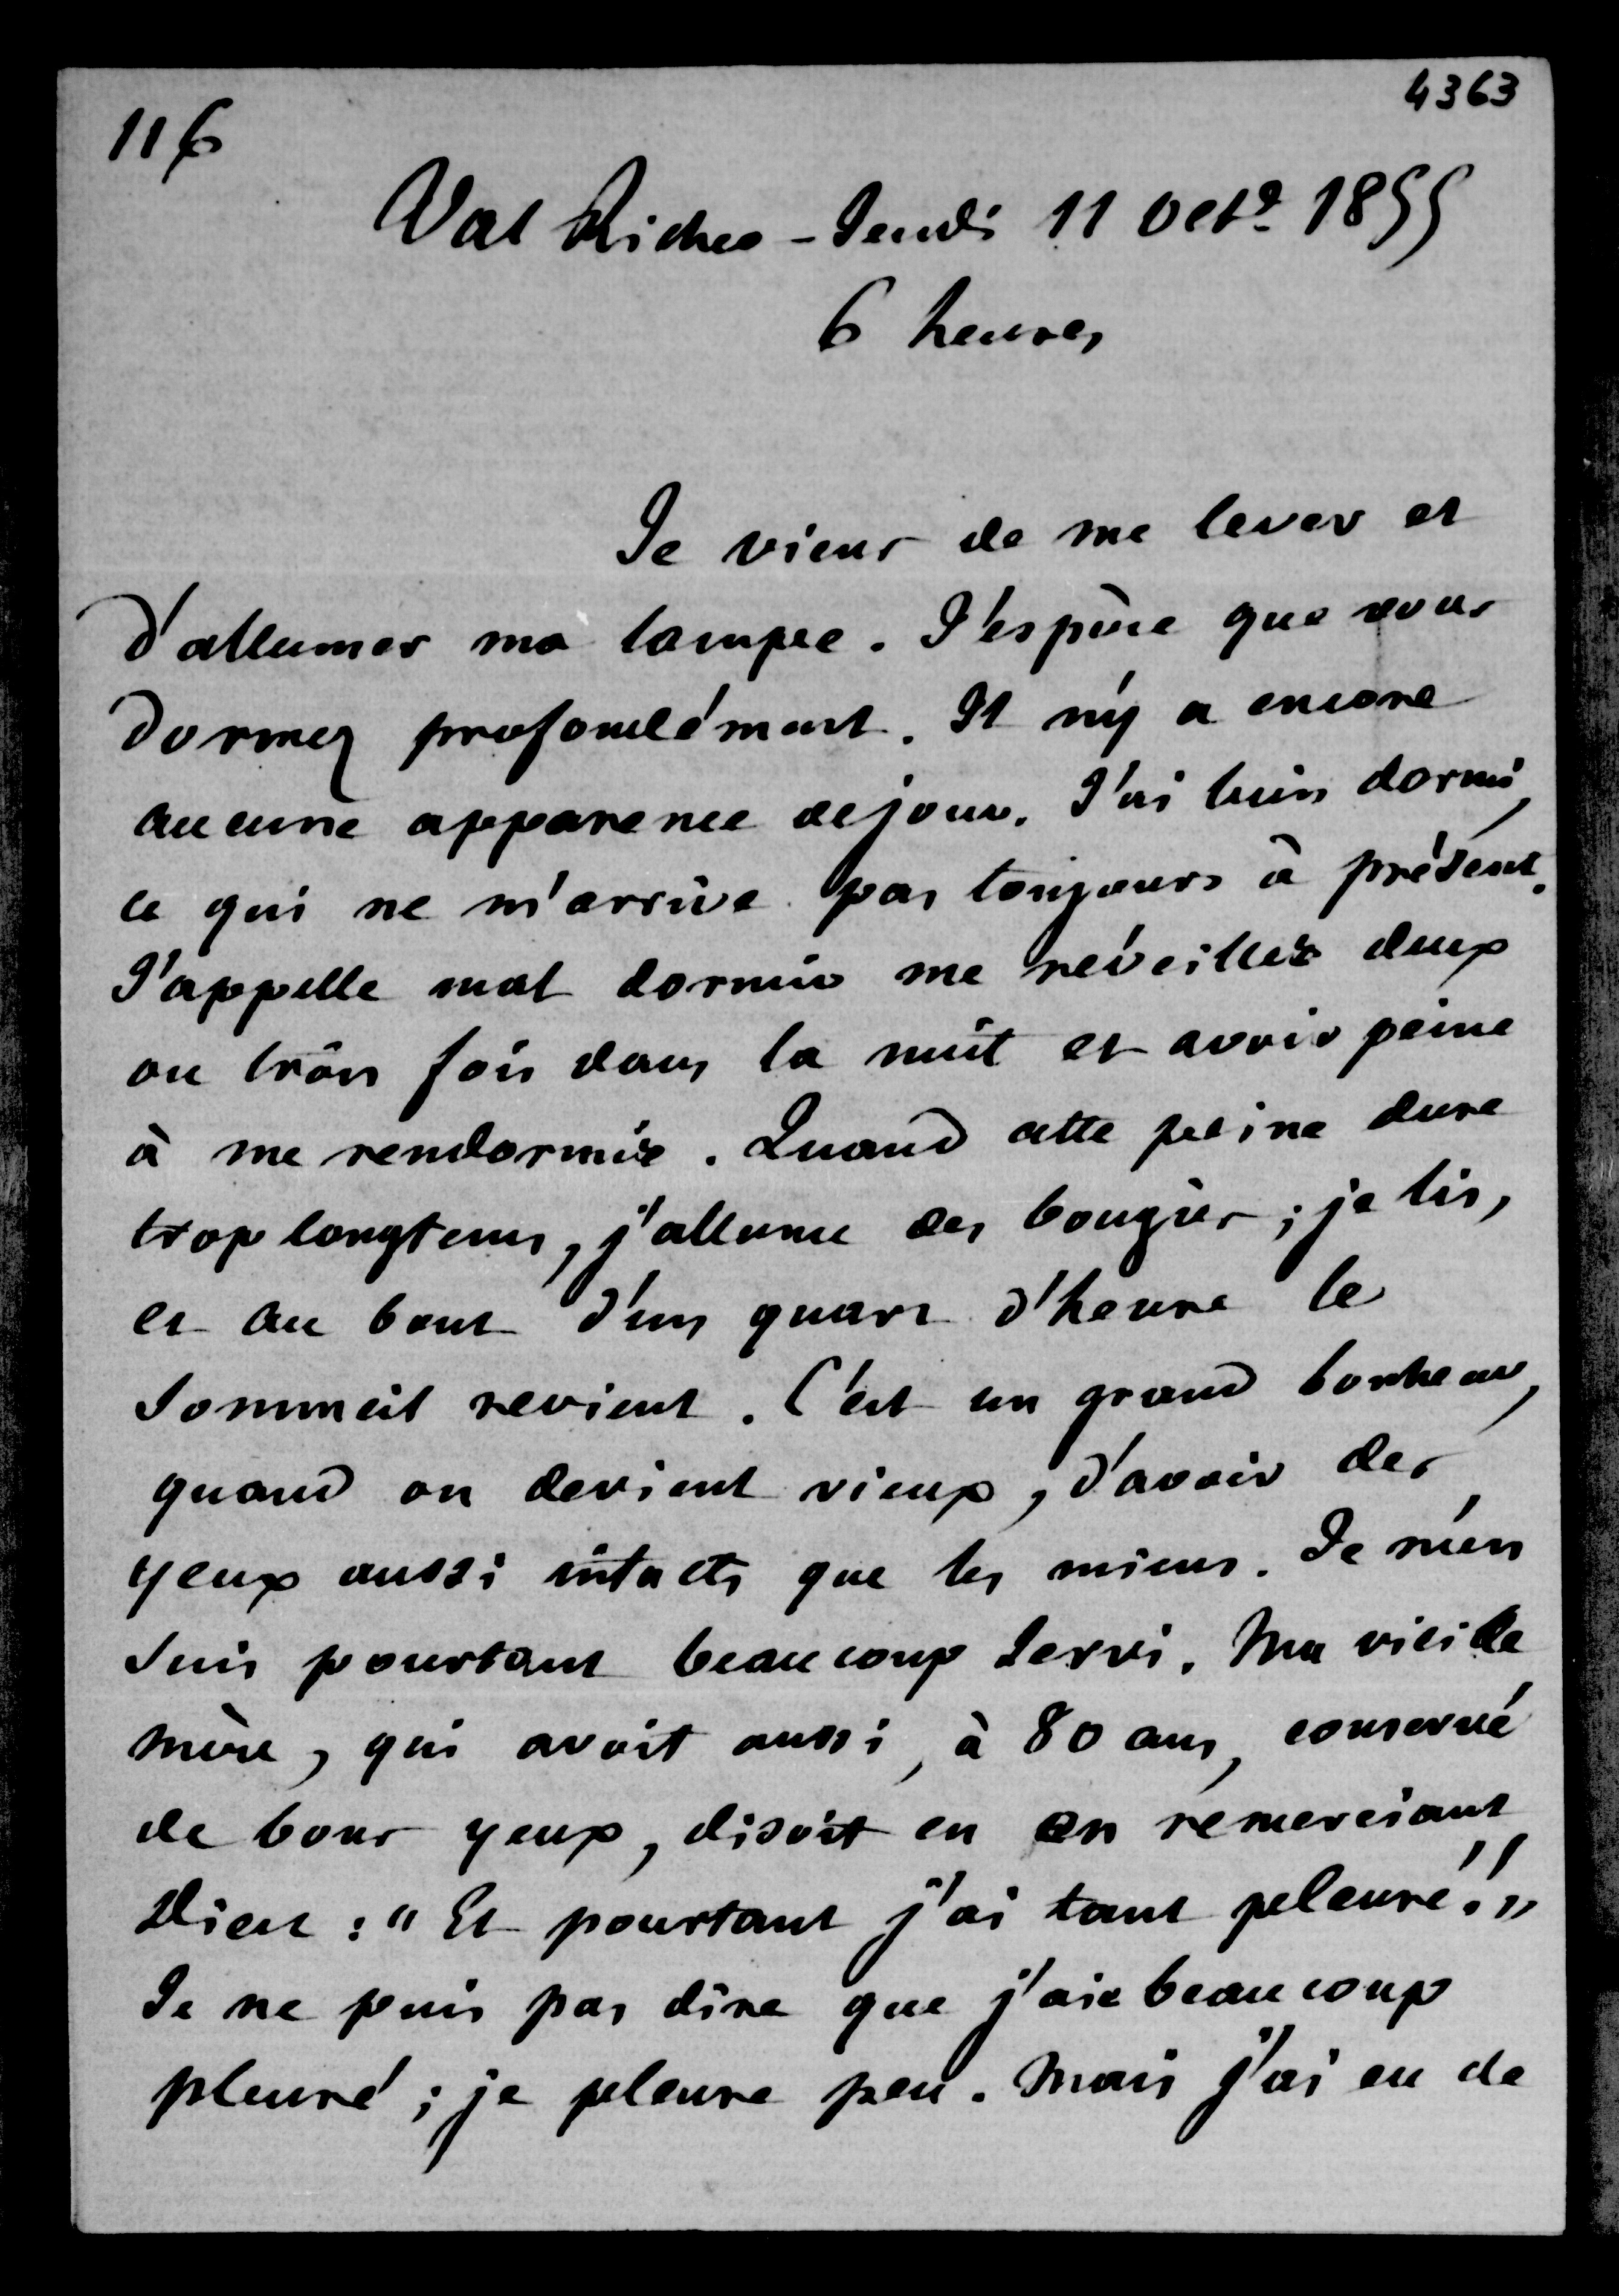 4363
116
Val Richer - Jeudi 11 Octe 1855
6 heures
Je viens de me lever et
d'allumer ma lampe. J'espère que vous
dormez profondément. Il n'y a encore
aucune apparence de jour. J'ai bien dormi,
ce qui ne m'arrive pas toujours à présent.
J'appelle mal dormir me réveiller deux
ou trois fois dans la nuit et avoir peine
à me rendormir. Quand cette peine dure
trop longtems, j'allume des bougies ; je lis,
et au bout d'un quart d'heure le
sommeil revient. C'est un grand bonheur,
quand on devient vieux, d'avoir des
yeux aussi intacts que les miens. Je m'en
suis pourtant beaucoup servi. Ma vieille
mère, qui avoit aussi, à 80 ans, conservé
de bons yeux, disoit en en remerciant
Dieu : " Et pourtant j'ai tant pleuré ! "
Je ne puis pas dire que j'aie beaucoup
pleuré ; je pleure peu. Mais j'ai eu de